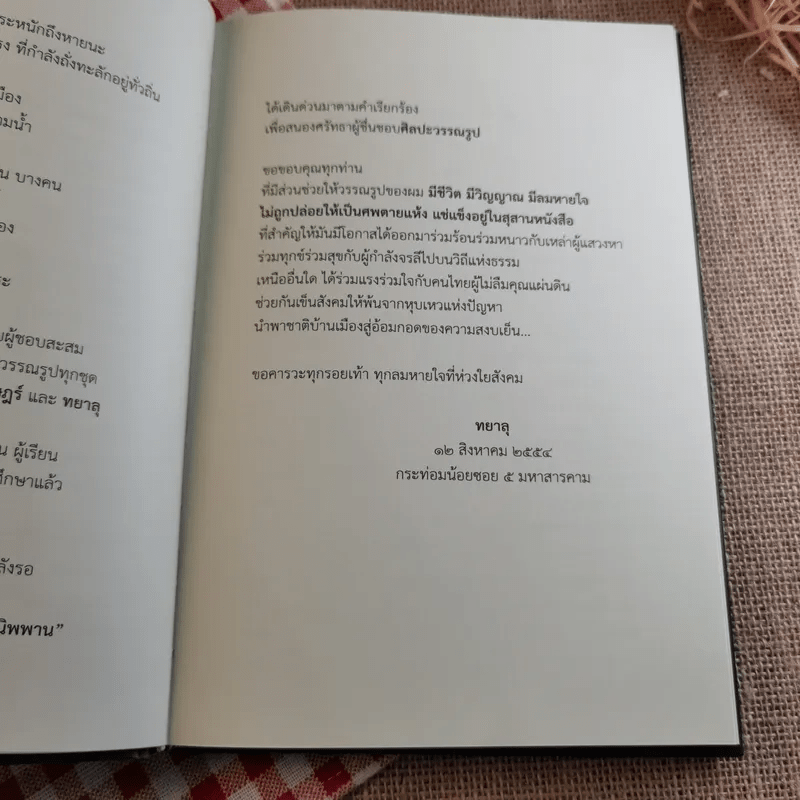 ระหนักถึงหายนะ
ที่กำลังถั่งทะลักอยู่ทั่วถิ่น
บางคน
ผู้ชอบสะสม
วรรณรูปทุกชุด
และ ทยาลุ
ผู้เรียน
นิพพาน”
ได้เดินด่วนมาตามคำเรียกร้อง
เพื่อสนองศรัทธาผู้ชื่นชอบศิลปะวรรณรูป
ขอขอบคุณทุกท่าน
ที่มีส่วนช่วยให้วรรณรูปของผม มีชีวิต มีวิญญาณ มีลมหายใจ
ไม่ถูกปล่อยให้เป็นศพตายแห้ง แช่แข็งอยู่ในสุสานหนังสือ
ที่สำคัญให้มันมีโอกาสได้ออกมาร่วมร้อนร่วมหนาวกับเหล่าผู้แสวงหา
ร่วมทุกข์ร่วมสุขกับผู้กำลังจรลีไปบนวิถีแห่งธรรม
เหนืออื่นใด ได้ร่วมแรงร่วมใจกับคนไทยผู้ไม่ลืมคุณแผ่นดิน
ช่วยกันเข็นสังคมให้พ้นจากหุบเหวแห่งปัญหา
นำพาชาติบ้านเมืองสู่อ้อมกอดของความสงบเย็น...
ขอคารวะทุกรอยเท้า ทุกลมหายใจที่ห่วงใยสังคม
ทยาลุ
๑๒ สิงหาคม ๒๕๕๔
กระท่อมน้อยซอย ๕ มหาสารคาม